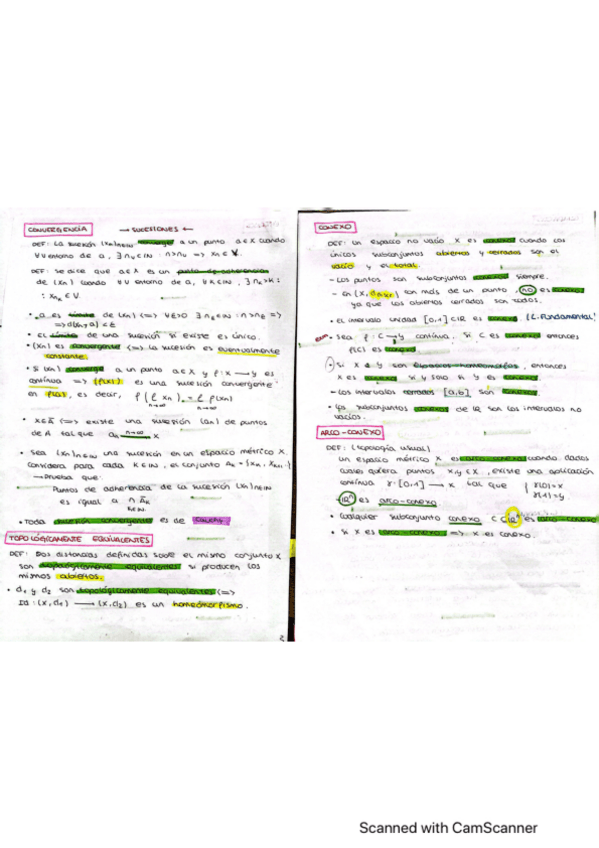 CONVERGENCIA → SUCESIONES ←
DEF: La sucesión (xn)n∈IN converge a un punto a∈X cuando
∀V entorno de a, ∃ nv∈IN : n>nv => xn∈V.
DEF: se dice que a∈X es un punto de adherencia
de (xn) cuando ∀V entorno de a, ∀k∈IN, ∃ nk>k :
: xnk∈V.
• a es límite de (xn) <=> ∀ε>0 ∃ nε∈IN : n>nε =>
=> d(xn,a)<ε
• El límite de una sucesión si existe es único.
• (xn) es convergente <=> la sucesión es eventualmente
constante.
• Si (xn) converge a un punto a∈X y f: X → Y es
continua => (f(xn)) es una sucesión convergente
en f(a), es decir,
• x∈Ā <=> existe una sucesión (an) de puntos
de A tal que
• Sea (xn)n∈IN una sucesión en un espacio métrico X.
Considera para cada k∈IN, el conjunto Ak = {xk, xk+1, ...}
→ Prueba que:
Puntos de adherencia de la sucesión (xn)n∈IN
es igual a ∩ Āk
k∈IN.
• Toda sucesión convergente es de Cauchy
TOPOLÓGICAMENTE EQUIVALENTES
DEF: Dos distancias definidas sobre el mismo conjunto X
son topológicamente equivalentes si producen los
mismos abiertos.
• d1 y d2 son topológicamente equivalentes <=>
Id: (X,d1) → (X,d2) es un homeomorfismo.
CONEXO
DEF: Un espacio no vacío X es conexo cuando los
únicos subconjuntos abiertos y cerrados son el
vacío y el total.
- Los puntos son subconjuntos conexos siempre.
- En (X, ddiscr) con más de un punto, no es conexo
ya que los abiertos cerrados son todos.
• El intervalo unidad [0,1] ⊂ IR es conexo (L. Fundamental)
• Sea f: C → Y continua. Si C es conexo entonces
f(C) es conexo
• Si X e Y son espacios homeomorfos, entonces
X es conexo si y solo si Y es conexo
- Los intervalos cerrados [a,b] son conexos
• Los subconjuntos conexos de IR son los intervalos no
vacíos.
ARCO-CONEXO
DEF: (topología usual)
Un espacio métrico X es arco-conexo cuando dados
cualesquiera puntos x,y∈X, existe una aplicación
continua γ: [0,1] → X tal que { γ(0)=x
γ(1)=y
IRn es arco-conexo
• Cualquier subconjunto conexo C ⊂ IRn es arco-conexo
• Si X es arco-conexo => X es conexo.
Scanned with CamScanner